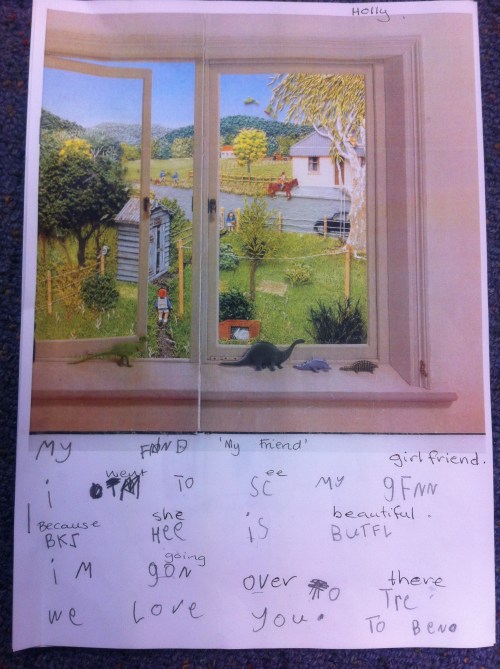 Holly
MY FRND 'My Friend'
girlfriend.
went ee
i TO SC MY gFNN
Because she beautiful.
BKS HEE iS BUTFL
going
i M gON over TO there
Tre
we Love you. TO Beno